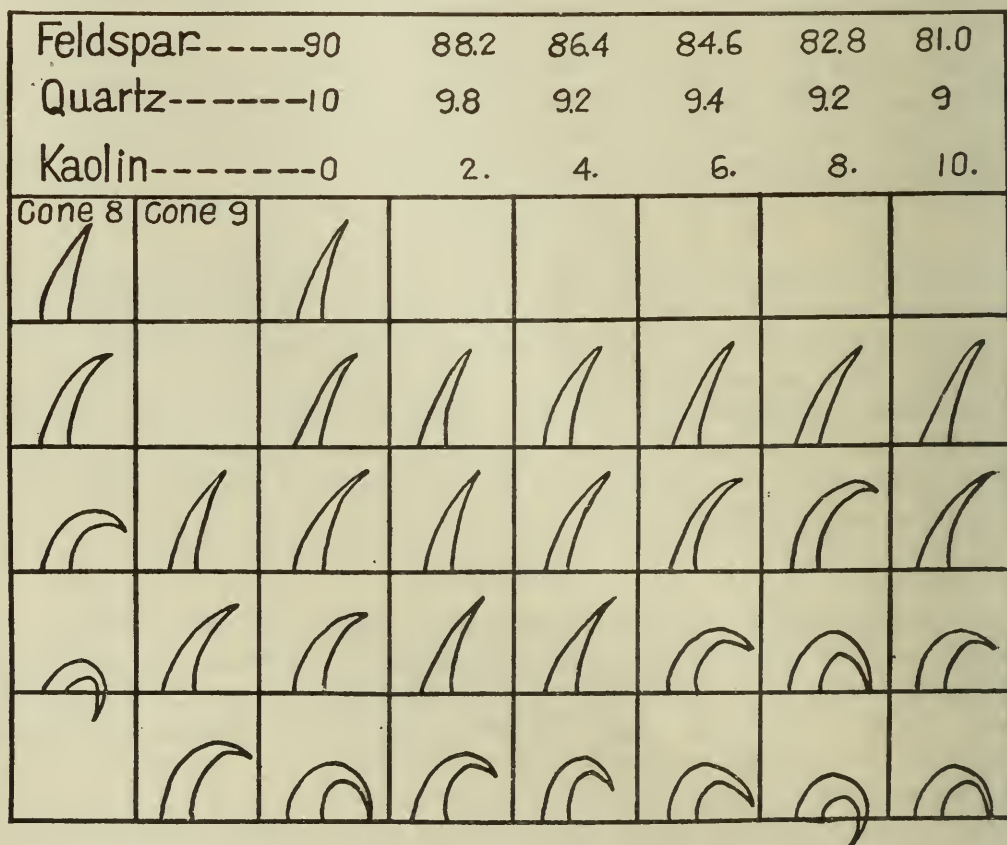 Feldspar-----90 88.2 86.4 84.6 82.8 81.0
Quartz-------10 9.8 9.2 9.4 9.2 9
Kaolin--------0 2. 4. 6. 8. 10.
Cone 8 Cone 9